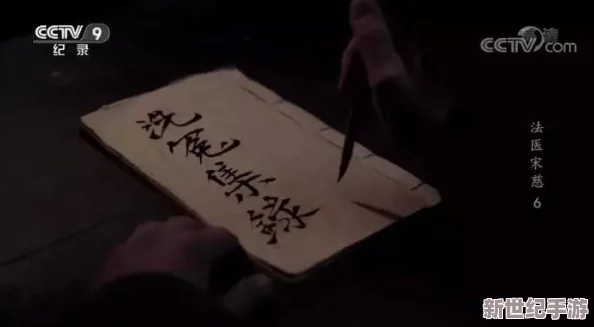 CCTV 9
纪录
CCTV.com
法医宋慈 6
洗冤集錄
新世纪手游